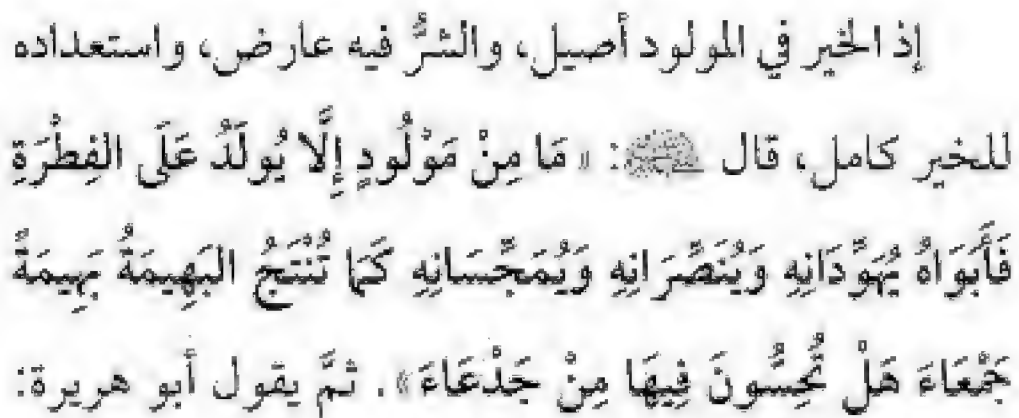 إذ الخير في المولود أصيل، والشرُّ فيه عارض، واستعداده
للخير كامل، قال ﷺ: «مَا مِنْ مَوْلُودٍ إِلَّا يُولَدُ عَلَى الفِطْرَةِ
فَأَبَوَاهُ يُهَوِّدَانِهِ وَيُنَصِّرَانِهِ وَيُمَجِّسَانِهِ كَمَا تُنْتَجُ البَهِيمَةُ بَهِيمَةً
جَمْعَاءَ هَلْ تُحِسُّونَ فِيهَا مِنْ جَدْعَاءَ». ثمَّ يقول أبو هريرة: